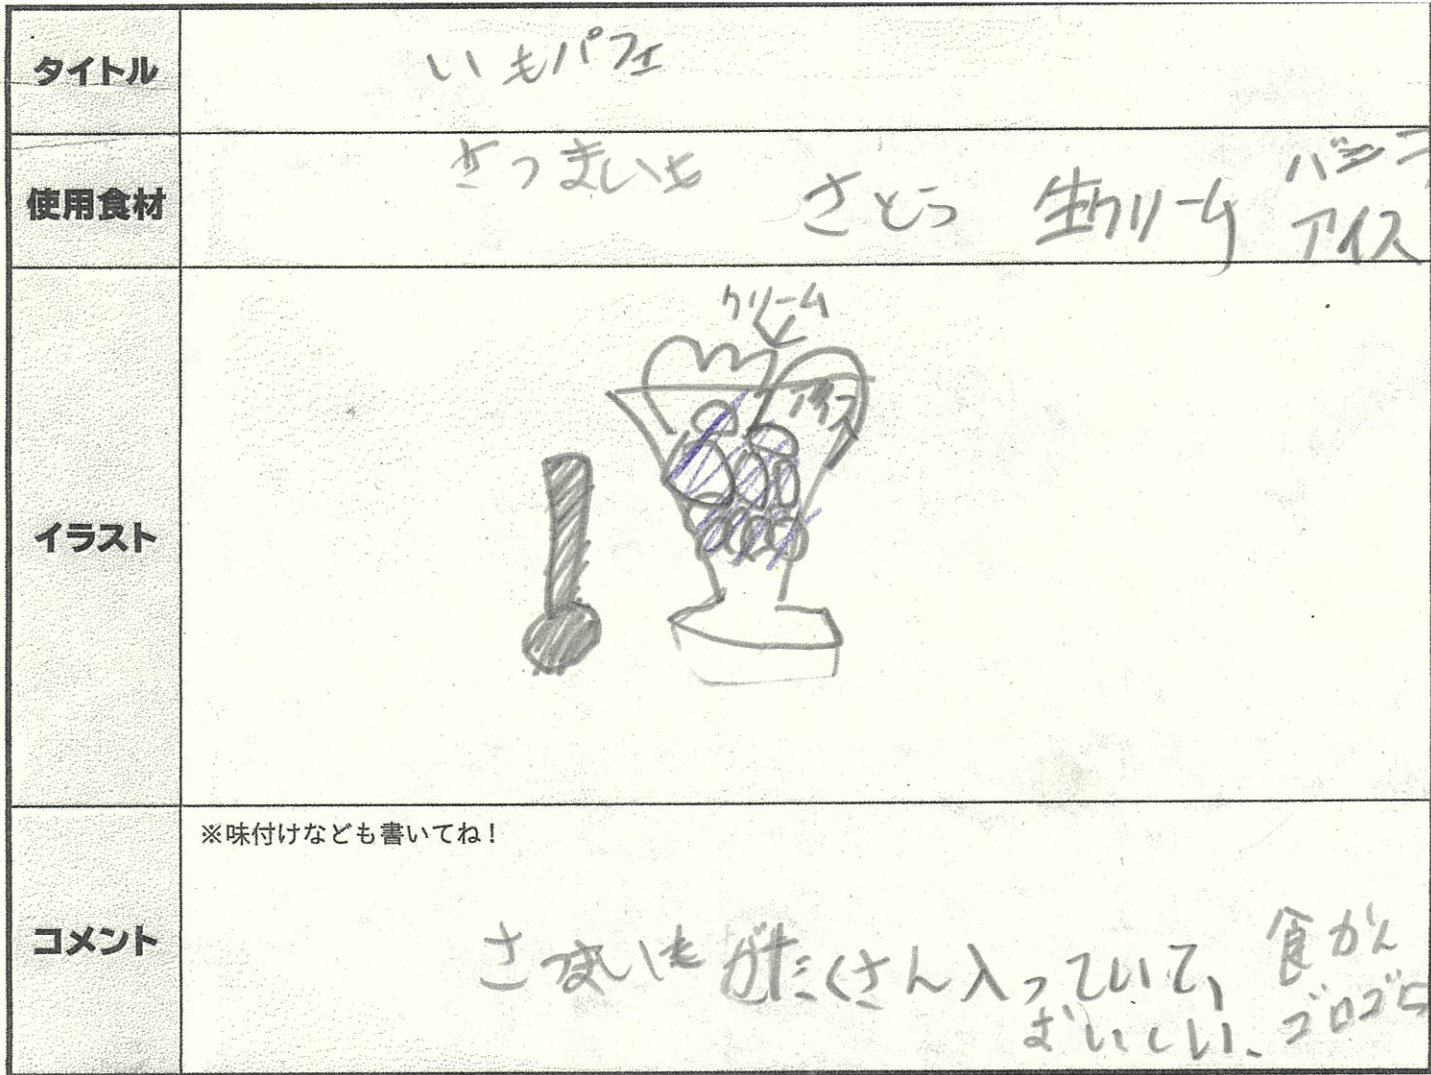 タイトル
いもパフェ
使用食材
さつまいも さとう 生クリーム バニラ
アイス
イラスト
クリーム
アイス
コメント
※味付けなども書いてね！
さつまいもがたくさん入っていて、食かん
おいしい、ゴロゴロ